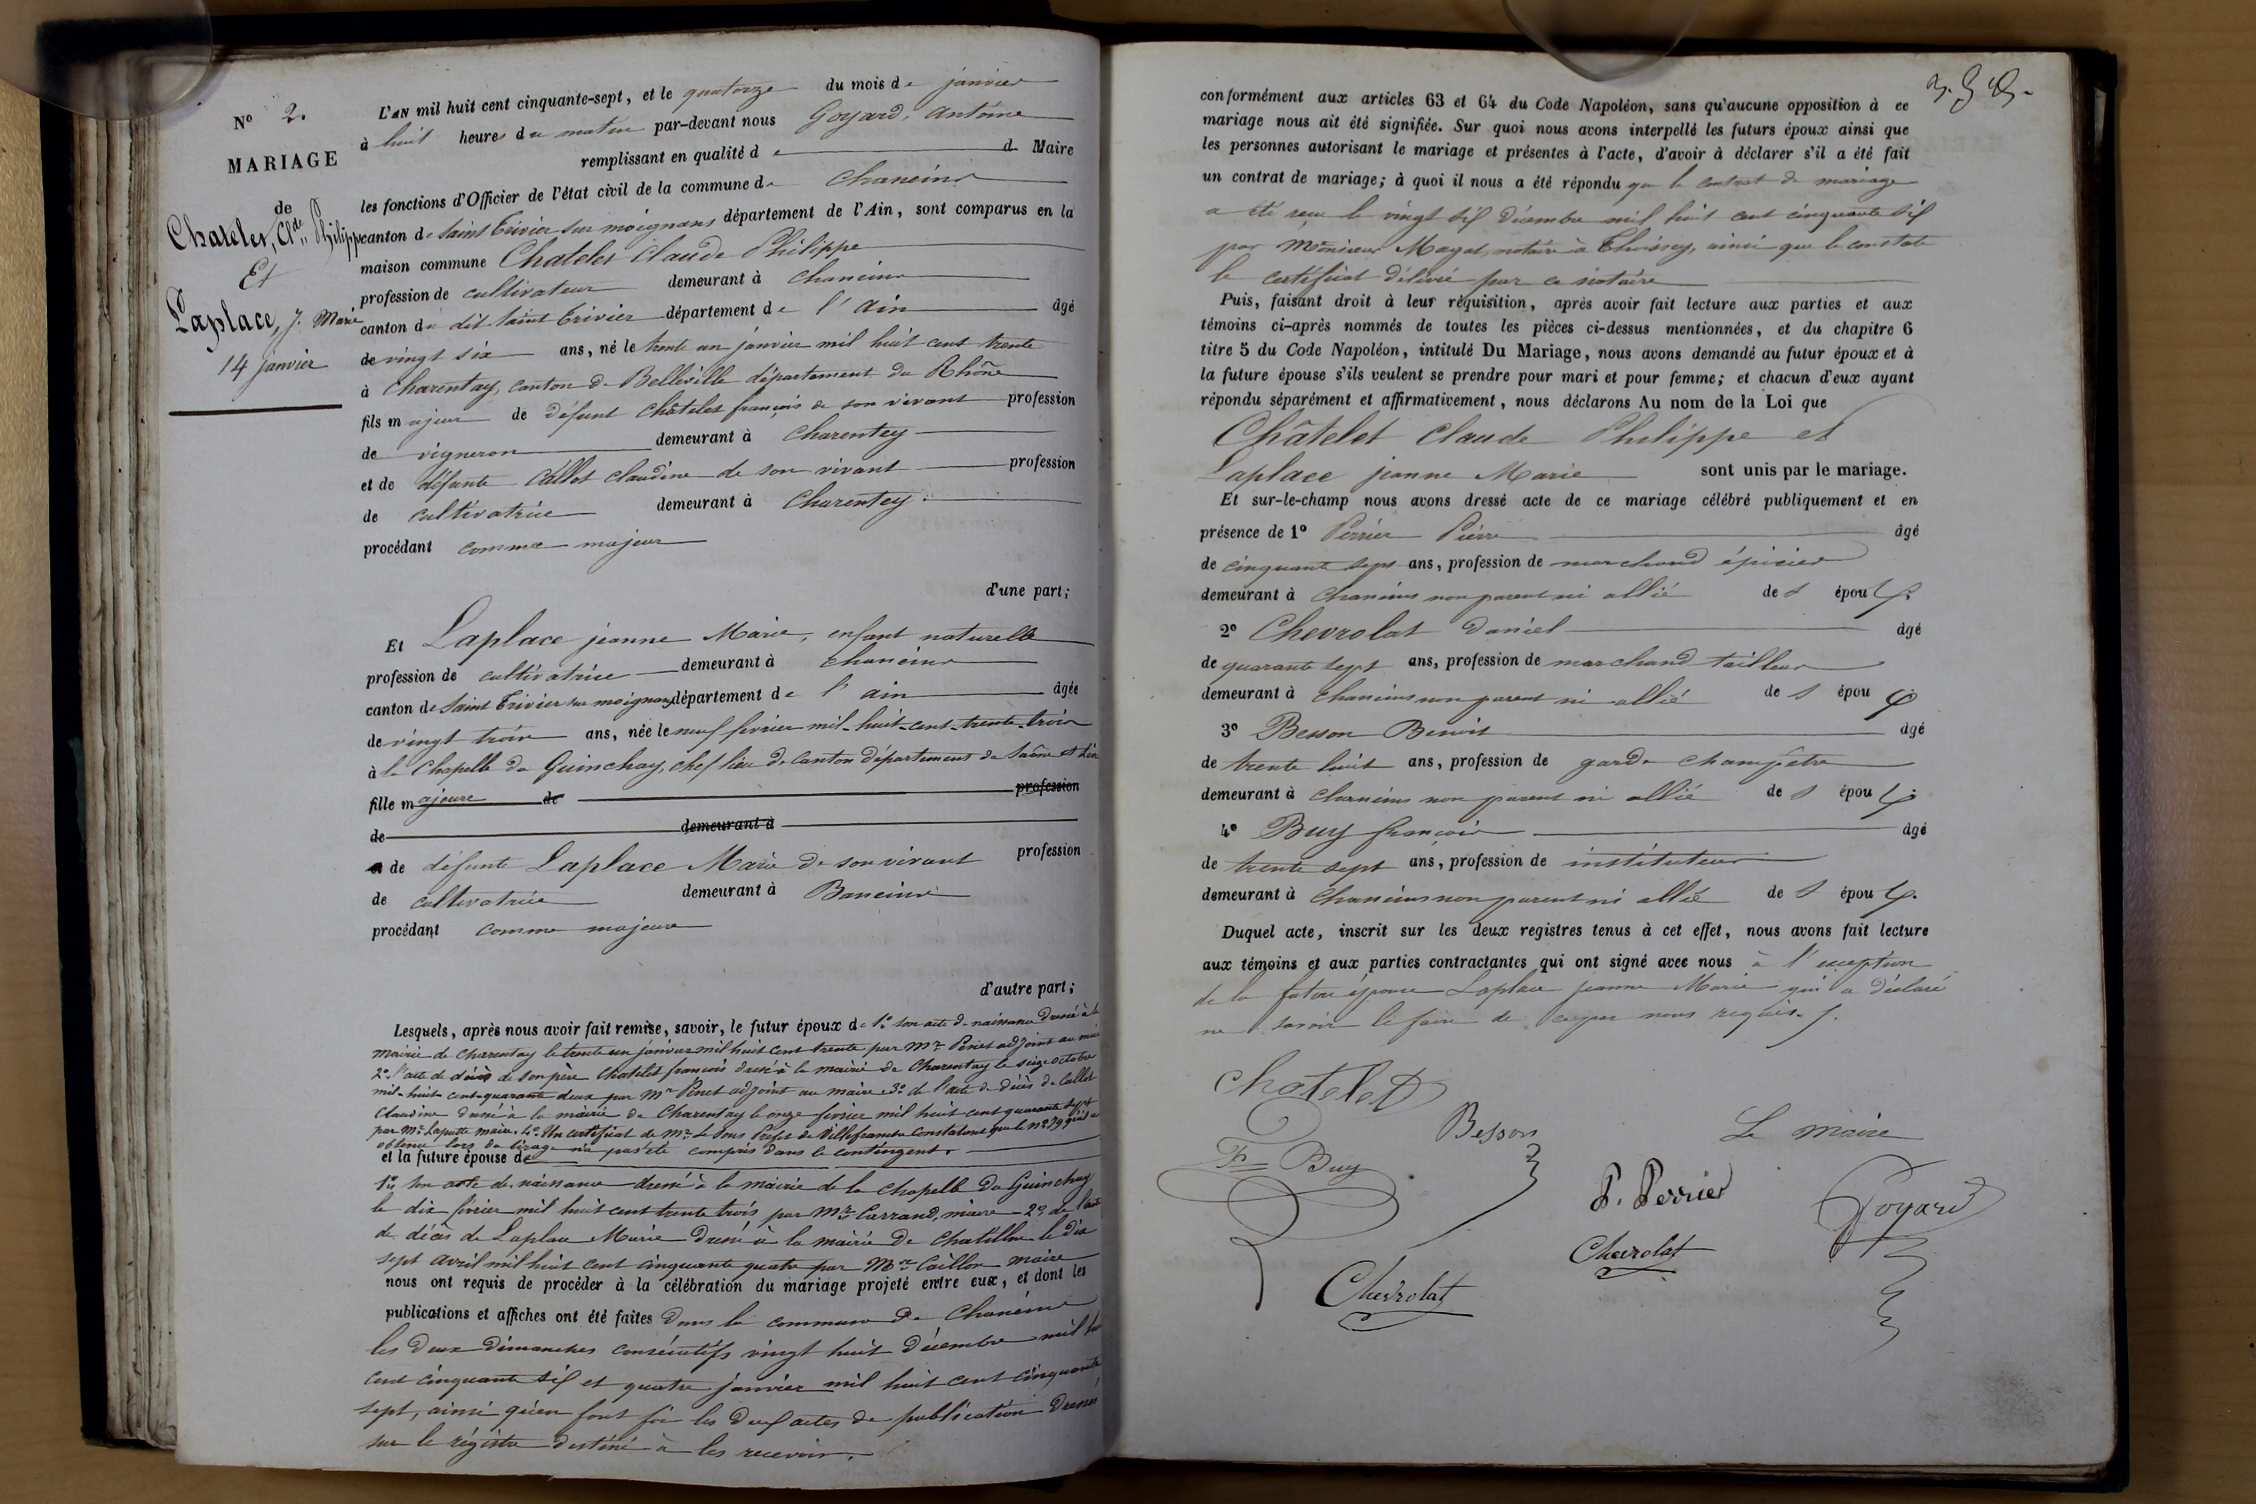 N° 2.
MARIAGE
de
Chatelet, Cl.de Philippe
Et
Laplace, J. Marie
14 janvier
L'AN mil huit cent cinquante-sept, et le quatorze du mois de janvier
à huit heures du matin par-devant nous Goyard, Antoine
remplissant en qualité de d Maire
les fonctions d'Officier de l'état civil de la commune de Chaneins
canton de Saint Trivier sur moignans département de l'Ain, sont comparus en la
maison commune Chatelet Claude Philippe
profession de cultivateur demeurant à Chaneins
canton du dit Saint Trivier département de l'ain âgé
de vingt six ans, né le trente un janvier mil huit cent trente
à Charentay, canton de Belleville département du Rhône
fils majeur de défunt Châtelet françois de son vivant profession
de vigneron demeurant à Charentey
et de défunte Callot claudine de son vivant profession
de cultivatrice demeurant à Charentey
procédant comme majeur
d'une part;
Et Laplace jeanne Marie, enfant naturelle
profession de cultivatrice demeurant à Chaneins
canton de Saint Trivier sur moignans département de l'ain âgée
de vingt trois ans, née le neuf fevrier mil-huit-cent-trente-trois
à la Chapelle de Guinchay, chef lieu de Canton département de Saône et Loire
fille majeure de profession
de demeurant à
et de défunte Laplace Marie de son vivant profession
de cultivatrice demeurant à Baneins
procédant comme majeure
d'autre part;
Lesquels, après nous avoir fait remise, savoir, le futur époux de 1° son acte de naissance dressé à la
mairie de Charentay le trente un janvier mil huit cent trente par Mr Penet adjoint au maire
2° l'acte de décès de son père Chatelet francois dressé à la mairie de Charentay le seize octobre
mil-huit-cent-quarante deux par Mr Penet adjoint au maire 3° de l'acte de décès de Callot
Claudine dressé à la mairie de Charentay le onze fevrier mil huit cent quarante sept
par Mr Laputte maire. 4° Un certificat de Mr le Sous Prefet de Villefranche Constatant que le n° 79 qu'il a
obtenu lors du tirage n'a pas été compris dans le contingent.
et la future épouse de
1° son acte de naissance dressé à la mairie de la Chapelle de Guinchay
le dix fevrier mil huit cent trente trois par Mr Carrand, maire 2° de l'acte
de décès de Laplace Marie dressé à la mairie de Chatillon le dix
sept avril mil huit cent cinquante quatre par Mr Caillon maire
nous ont requis de procéder à la célébration du mariage projeté entre eux, et dont les
publications et affiches ont été faites dans la commune de Chaneins
les deux dimanches consécutifs vingt huit décembre mil huit
cent cinquante six et quatre janvier mil huit cent cinquante
sept, ainsi qu'en font foi les deux actes de publication dressés
sur le régistre destiné à les recevoir.
conformément aux articles 63 et 64 du Code Napoléon, sans qu'aucune opposition à ce
mariage nous ait été signifiée. Sur quoi nous avons interpellé les futurs époux ainsi que
les personnes autorisant le mariage et présentes à l'acte, d'avoir à déclarer s'il a été fait
un contrat de mariage; à quoi il nous a été répondu que le contrat de mariage
a été reçu le vingt six décembre mil huit cent cinquante six
par Monsieur Magat, notaire à Thoissey, ainsi que le constate
le certificat délivré par ce notaire
Puis, faisant droit à leur réquisition, après avoir fait lecture aux parties et aux
témoins ci-après nommés de toutes les pièces ci-dessus mentionnées, et du chapitre 6
titre 5 du Code Napoléon, intitulé Du Mariage, nous avons demandé au futur époux et à
la future épouse s'ils veulent se prendre pour mari et pour femme; et chacun d'eux ayant
répondu séparément et affirmativement, nous déclarons Au nom de la Loi que
Châtelet Claude Philippe et
Laplace jeanne Marie sont unis par le mariage.
Et sur-le-champ nous avons dressé acte de ce mariage célébré publiquement et en
présence de 1° Perrier Pierre âgé
de cinquante sept ans, profession de marchand épicier
demeurant à Chaneins non parent ni allié des époux.
2° Chevrolat Daniel âgé
de quarante sept ans, profession de marchand tailleur
demeurant à Chaneins non parent ni allié des époux
3° Besson Benoit âgé
de trente huit ans, profession de garde champêtre
demeurant à Chaneins non parent ni allié des époux.
4° Buy françois âgé
de trente sept ans, profession de instituteur
demeurant à Chaneins non parent ni allié des époux.
Duquel acte, inscrit sur les deux registres tenus à cet effet, nous avons fait lecture
aux témoins et aux parties contractantes qui ont signé avec nous à l'exception
de la future épouse Laplace jeanne Marie qui a déclaré
ne savoir le faire de ce par nous requis.
Chatelet
Besson
Le maire
Fs Buy
P. Perrier
Goyard
Chevrolat
Chevrolat